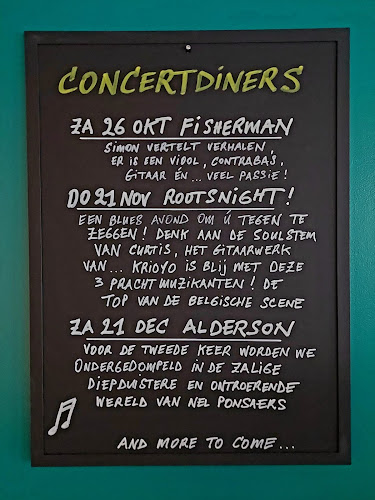 CONCERTDINERS
ZA 26 OKT FISHERMAN
SIMON VERTELT VERHALEN,
ER IS EEN VIOOL, CONTRABAS,
GITAAR ÉN ... VEEL PASSIE!
DO 21 NOV ROOTSNIGHT!
EEN BLUES AVOND OM Ú TEGEN TE
ZEGGEN! DENK AAN DE SOULSTEM
VAN CURTIS, HET GITAARWERK
VAN... KRIOYO IS BLIJ MET DEZE
3 PRACHTMUZIKANTEN! DE
TOP VAN DE BELGISCHE SCENE
ZA 21 DEC ALDERSON
VOOR DE TWEEDE KEER WORDEN WE
ONDERGEDOMPELD IN DE ZALIGE
DIEPDUISTERE EN ONTROERENDE
WERELD VAN NEL PONSAERS
AND MORE TO COME...